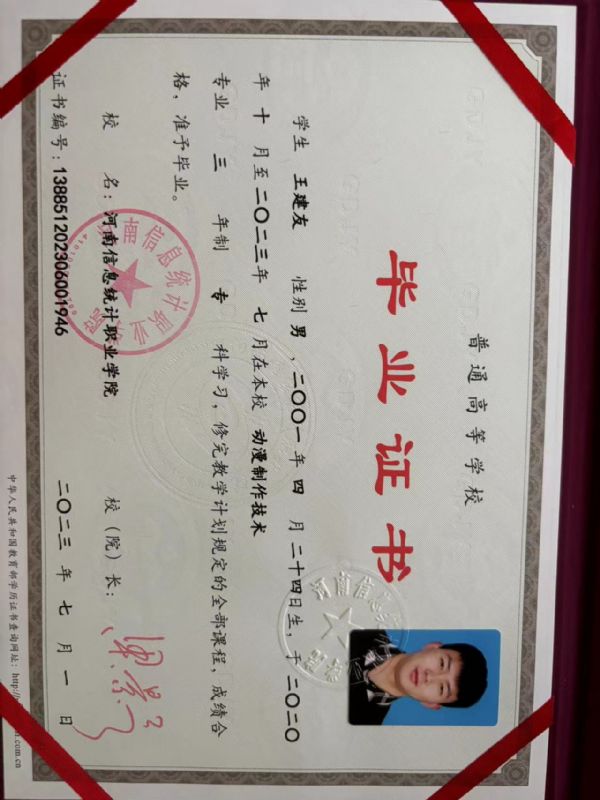 普通高等学校
毕业证书
学生 王建友 性别 男 ，二〇〇一年 四 月 二十四日生，于 二〇二〇
年 十 月至 二〇二三年 七 月在本校 动漫制作技术
专业 三 年制 专 科学习，修完教学计划规定的全部课程，成绩合
格，准予毕业。
校 名：河南信息统计职业学院 校（院）长：
证书编号：138851202306001946 二〇二三 年 七 月 一 日
中华人民共和国教育部学历证书查询网址：